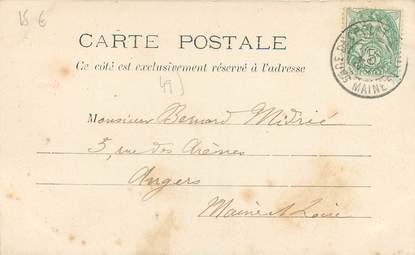 15 €
CARTE POSTALE
Ce côté est exclusivement réservé à l'adresse
49
Monsieur Bernard Midrié
5, rue des Arènes
Angers
Maine et Loire
5
MAINE